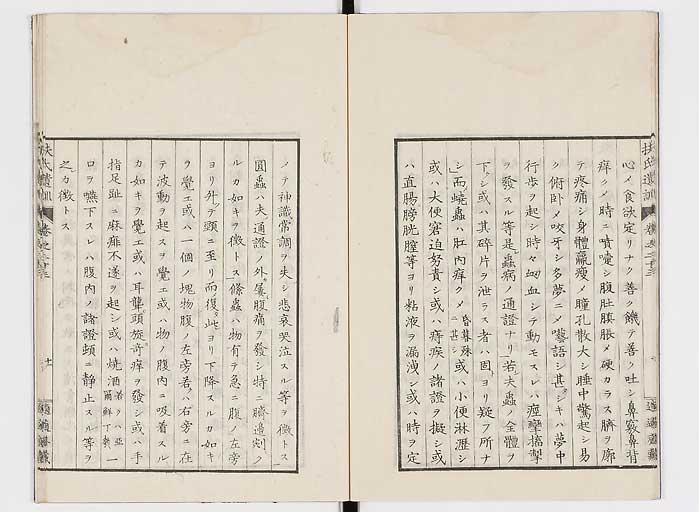 心メ食欲定リナク善ク饑テ善ク吐シ鼻竅鼻背
痒クメ時ニ噴嚏シ腹肚膨脹メ硬カラス臍ヲ廓
テ疼痛シ身體羸瘦メ瞳孔散大シ睡中驚起シ易
ク俯臥メ咬牙シ多夢ニメ囈語シ甚シキハ夢中
行歩ヲ起シ時々衄血シテ動モスレハ痙攣搐掣
ヲ發スル等是蟲病ノ通證ナリ若夫蟲ノ全體ヲ
下シ或ハ其碎片ヲ泄ラス者ハ固ヨリ疑フ所ナ
シ而蟯蟲ハ肛内痒クメ昏暮殊ニ甚シ或ハ小便淋瀝シ
或ハ大便窘迫努責シ或ハ痔疾ノ諸證ヲ擬シ或
ハ直腸膀胱膣等ヨリ粘液ヲ漏洩シ或ハ時ヲ定
メテ神識常調ヲ失シ悲哀哭泣スル等ヲ徵トス
圓蟲ハ夫通證ノ外屢腹痛ヲ發シ特ニ臍邉刻ク
ルカ如キヲ徵トス絛蟲ハ物有テ急ニ腹ノ左旁
ヨリ外テ頭ニ至リ而復タ此ヨリ下降スルカ如キ
ヲ覺エ或ハ一個ノ塊物腹ノ左旁若ハ右旁ニ在
テ波動ヲ起スヲ覺エ或ハ物ノ腹内ニ吸着スル
カ如キヲ覺エ或ハ耳聾頭旋竒痒ヲ發シ或ハ手
指足趾ニ麻痺不遂ヲ起シ或ハ燒酒若クハ亞爾鮮丁幾一
ロヲ嚥下スレハ腹内ノ諸證頓ニ靜止スル等ヲ
之カ徵トス
扶氏遺訓
巻之二十三
十一